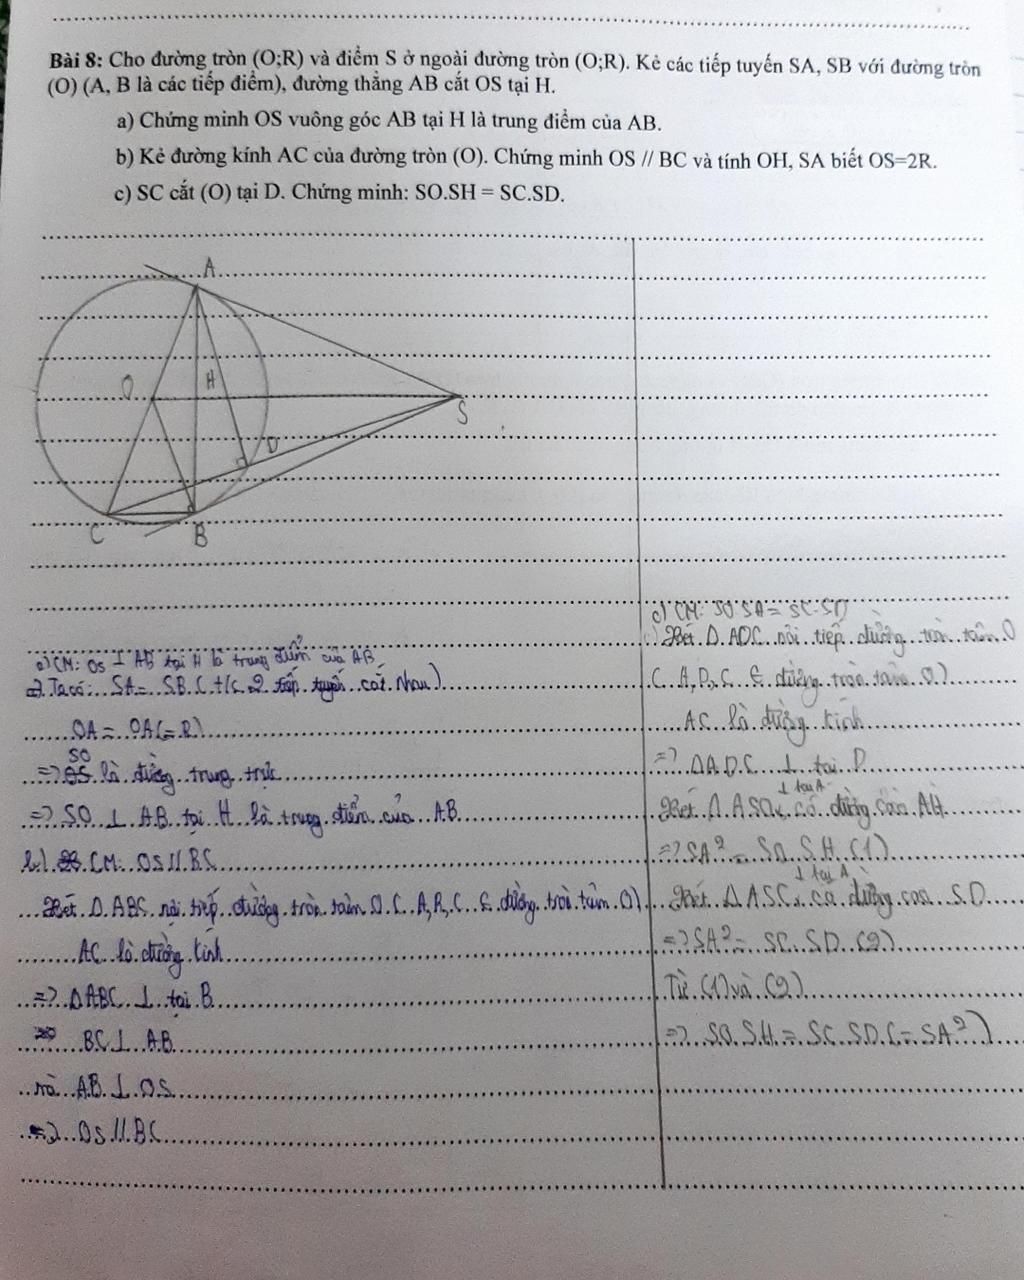 Bài 8: Cho đường tròn (O;R) và điểm S ở ngoài đường tròn (O;R). Kẻ các tiếp tuyến SA, SB với đường tròn
(O) (A, B là các tiếp điểm), đường thẳng AB cắt OS tại H.
a) Chứng minh OS vuông góc AB tại H là trung điểm của AB.
b) Kẻ đường kính AC của đường tròn (O). Chứng minh OS // BC và tính OH, SA biết OS=2R.
c) SC cắt (O) tại D. Chứng minh: SO.SH = SC.SD.
A
O
H
S
D
C
B
a) CM: OS ⊥ AB tại H là trung điểm của AB
=> Ta có: SA = SB (t/c 2 tiếp tuyến cắt nhau)
OA = OA (= R)
SO
=> là đường trung trực
=> SO ⊥ AB tại H là trung điểm của AB
b) CM: OS // BC
Xét Δ ABC nội tiếp đường tròn tâm O ( A, B, C ∈ đường tròn tâm O)
AC là đường kính
=> ΔABC ⊥ tại B
BC ⊥ AB
mà AB ⊥ OS
=> OS // BC
c) CM: SO.SA = SC.SD
Xét Δ ADC nội tiếp đường tròn tâm O
( A, D, C ∈ đường tròn tâm O)
AC là đường kính
=> ΔADC ⊥ tại D
⊥ tại A
Xét Δ ASO có đường cao AH
=> SA² = SO.SH (1)
⊥ tại A
Xét Δ ASC có đường cao SD
=> SA² = SC.SD (2)
Từ (1) và (2)
=> SO.SH = SC.SD (= SA²)